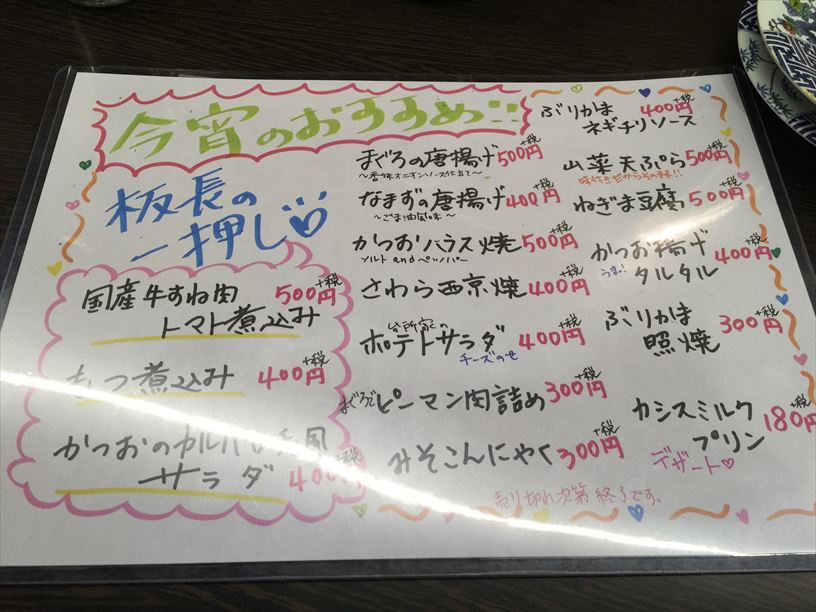 今宵のおすすめ!!
板長の
一押し♡
国産牛すね肉
トマト煮込み
500円+税
もつ煮込み 400円+税
かつおのカルパッチョ風
サラダ 400円+税
まぐろの唐揚げ 500円+税
～香味オニオンソース仕立て～
なまずの唐揚げ 400円+税
～ごま油風味～
かつおハラス焼 500円+税
ソルト and ペッパー
さわら西京焼 400円+税
ポテトサラダ 400円+税
チーズのせ
まぐろピーマン肉詰め 300円+税
みそこんにゃく 300円+税
ぶりかま
ネギチリソース
400円+税
山菜天ぷら 500円+税
味付きだからそのまま!!
ねぎま豆腐 500円+税
かつお揚げ
うま! タルタル
400円+税
ぶりかま
照焼
300円+税
カシスミルク
プリン
180円+税
デザート♡
売り切れ次第終了です。